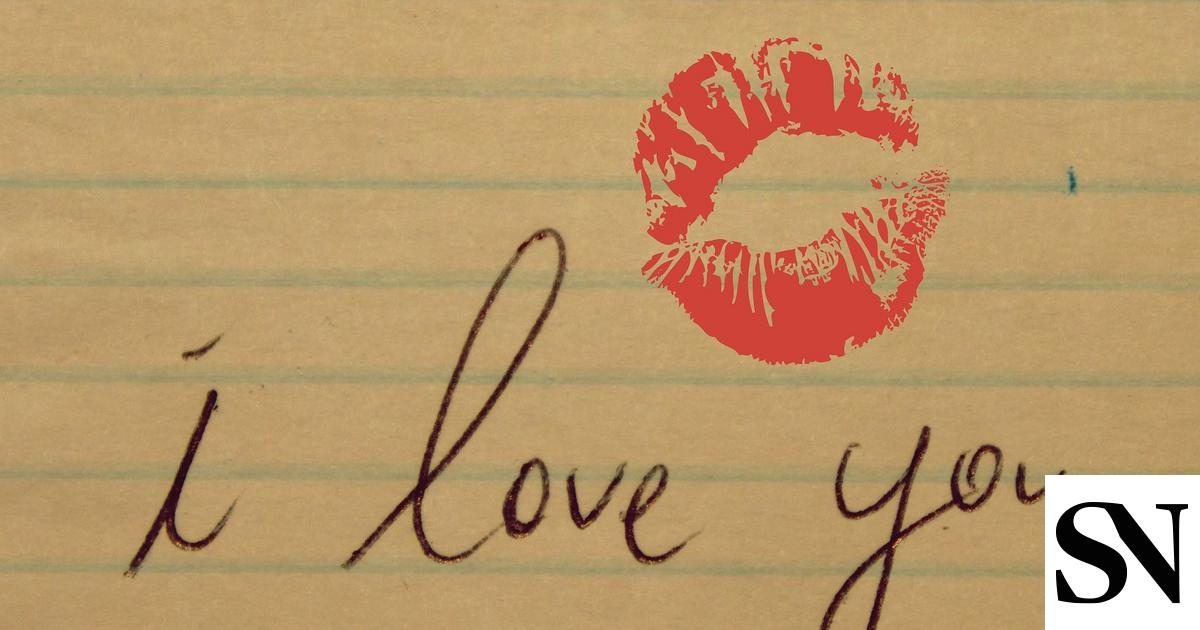 i love you
SN